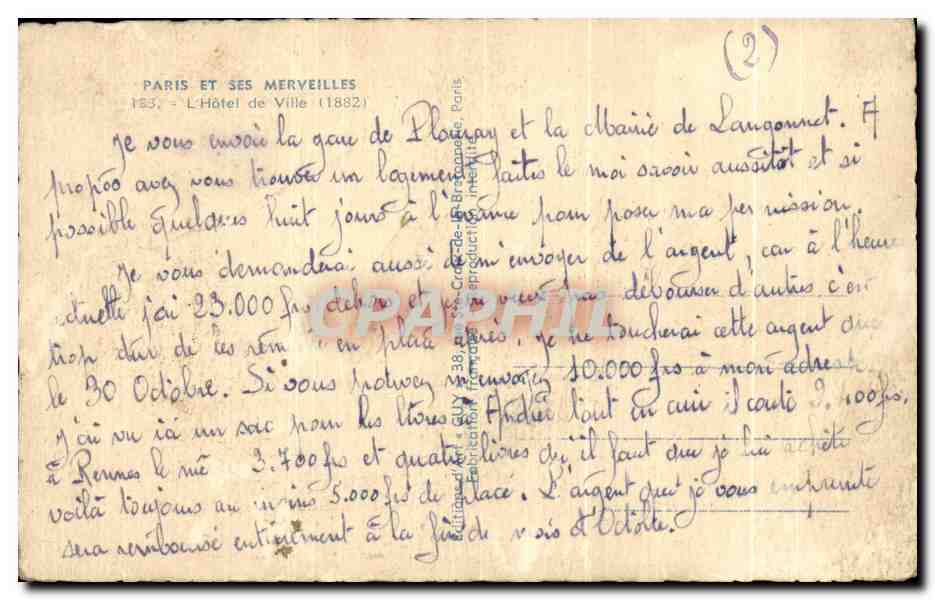 (2)
PARIS ET SES MERVEILLES
183. - L'Hôtel de Ville (1882)
Je vous envoie la gare de Plouray et la Mairie de Langonnet. A
propos avez vous trouver un logement, faites le moi savoir aussitôt et si
possible quelques huit jours à l'avance pour poser ma permission.
Je vous demanderai aussi de m'envoyer de l'argent, car à l'heure
actuelle j'ai 23.000 frs dehors et je ne veux pas débourser d'autres c'est
trop dur de les en place après, je ne toucherai cette argent que
le 30 Octobre. Si vous pouvez m'envoyez 10.000 frs à mon adresse
j'ai vu ici un sac pour les livres d'Andrée tout en cuir il coute 3.400 frs,
à Rennes le même 3.700 frs et quatre livres qu'il faut que je lui achète
voilà toujours au moins 5.000 frs de placé. L'argent que je vous emprunte
sera remboursé entièrement à la fin de mois d'Octobre.
Editions d'Art « GUY » 38, rue Ste-Croix-de-la-Bretonnerie, Paris
Fabrication française - Reproduction interdite
CPAPHIL